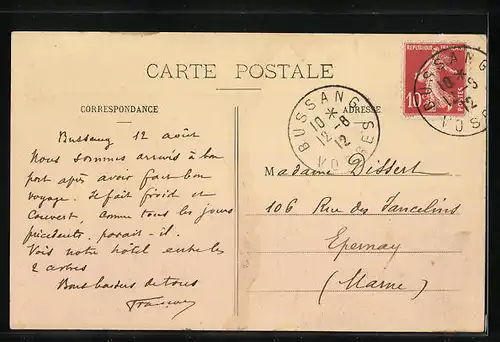 CARTE POSTALE
CORRESPONDANCE
ADRESSE
REPUBLIQUE FRANÇAISE
10
POSTES
BUSSANG
10 *
12 - 8
12
VOSGES
BUSSANG
10 *
12 - 8
12
VOSGES
Bussang 12 août
Nous sommes arrivés à bon
port après avoir fait bon
voyage. Il fait froid et
couvert, comme tous les jours
précédents, parait-il.
Vois notre hôtel entre les
2 arbres
Bons baisers de tous
Madame Dissert
106 Rue des Jancelins
Epernay
(Marne)